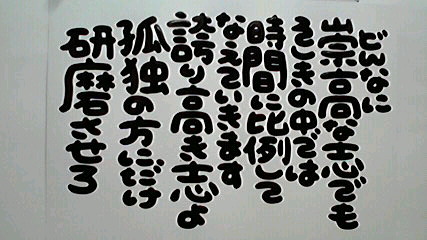 どんなに
崇高な志でも
ときの中では
時間に比例して
なえていきます
誇り高き志よ
孤独の方にだけ
研磨させろ